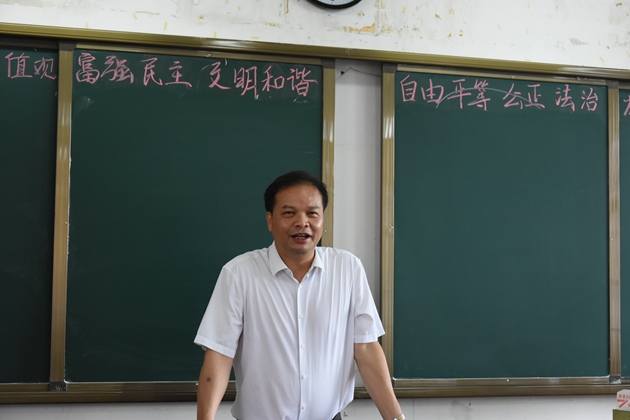 值观 富强 民主 文明 和谐 自由 平等 公正 法治